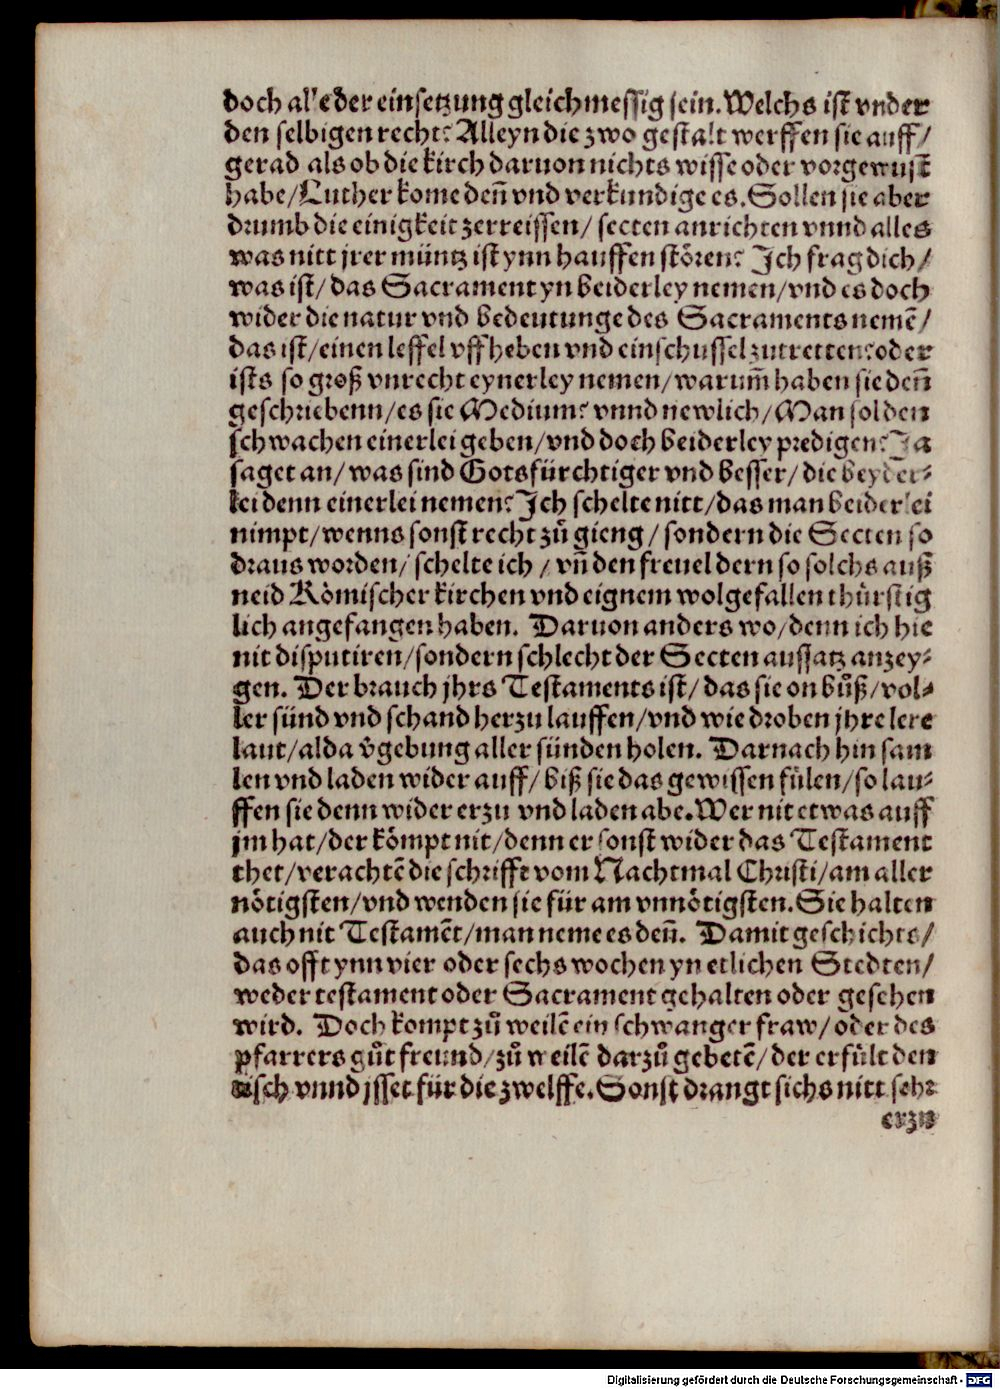 doch alle der einsetzung gleichmessig sein. Welchs ist vnder
den selbigen recht? Alleyn die zwo gestalt werffen sie auff/
gerad als ob die kirch daruon nichts wisse oder vorgewust
habe/ Luther kome deñ vnd verkundige es. Sollen sie aber
drumb die einigkeit zerreissen/ secten anrichten vnnd alles
was nitt jrer müntz ist ynn hauffen stören? Ich frag dich/
was ist/ das Sacrament yn beiderley nemen/ vnd es doch
wider die natur vnd bedeutunge des Sacraments nemẽ/
das ist/ einen leffel vffheben vnd ein schussel zutretten? oder
ists so groß vnrecht eynerley nemen/ warum̃ haben sie deñ
geschriebenn/ es sie Medium? vnnd newlich/ Man sol den
schwachen einerlei geben/ vnd doch beiderley predigen? Ja
saget an/ was sind Gotsfürchtiger vnd besser/ die beyder-
lei denn einerlei nemen? Ich schelte nitt/ das man beiderlei
nimpt/ wenns sonst recht zů gieng/ sondern die Secten so
draus worden/ schelte ich/ vñ den freuel dern so solchs auß
neid Römischer kirchen vnd eignem wolgefallen thürstig
lich angefangen haben. Daruon anders wo/ denn ich hie
nit disputiren/ sondern schlecht der Secten aussatz anzey-
gen. Der brauch jhrs Testaments ist/ das sie on bůß/ vol-
ler sünd vnd schand herzu lauffen/ vnd wie droben jhre lere
laut/ alda v̄gebung aller sünden holen. Darnach hin sam
len vnd laden wider auff/ biß sie das gewissen fülen/ so lau-
ffen sie denn wider erzu vnd laden abe. Wer nit etwas auff
jm hat/ der kömpt nit/ denn er sonst wider das Testament
thet/ verachtẽ die schrifft vom Nachtmal Christi/ am aller
nötigsten/ vnd wenden sie für am vnnötigsten. Sie halten
auch nit Testamẽt/ man neme es deñ. Damit geschichts/
das offt ynn vier oder sechs wochen yn etlichen Stedten/
weder testament oder Sacrament gehalten oder gesehen
wird. Doch kompt zů weilẽ ein schwanger fraw/ oder des
pfarrers gůt freund/ zů weilẽ darzů gebetẽ/ der erfült den
tisch vnnd jsset für die zwelffe. Sonst drangt sichs nitt sehr
erzu
Digitalisierung gefördert durch die Deutsche Forschungsgemeinschaft - DFG